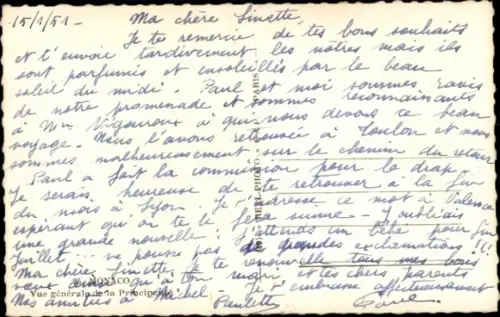 15/1/51 -
Ma chère Ginette,
Je te remercie de tes bons souhaits
et t'envoie tardivement les nôtres mais ils
sont parfumés et ensoleillés par le beau
soleil du midi. Paul et moi sommes ravis
de notre promenade et sommes reconnaissants
à Mme Vigouroux à qui nous devons ce beau
voyage. Nous l'avons retrouvée à Toulon et nous
sommes malheureusement sur le chemin du retour
Paul a fait la commission pour le drap.
Je serais heureuse de te retrouver à la fin
du mois à Lyon. Je t'adresse ce mot à Valence
espérant qu'on te le fera suivre - J'oubliais
une grande nouvelle: J'attends un bébé pour fin
Juillet... ne pousse pas de grandes exclamations !!!
Ma chère Ginette je te renouvelle tous mes bons
vœux ainsi qu'à ton mari et tes chers parents
Nos amitiés à Michel - Je t'embrasse affectueusement
Paulette
MONACO
Vue générale de la Principauté
PARIS